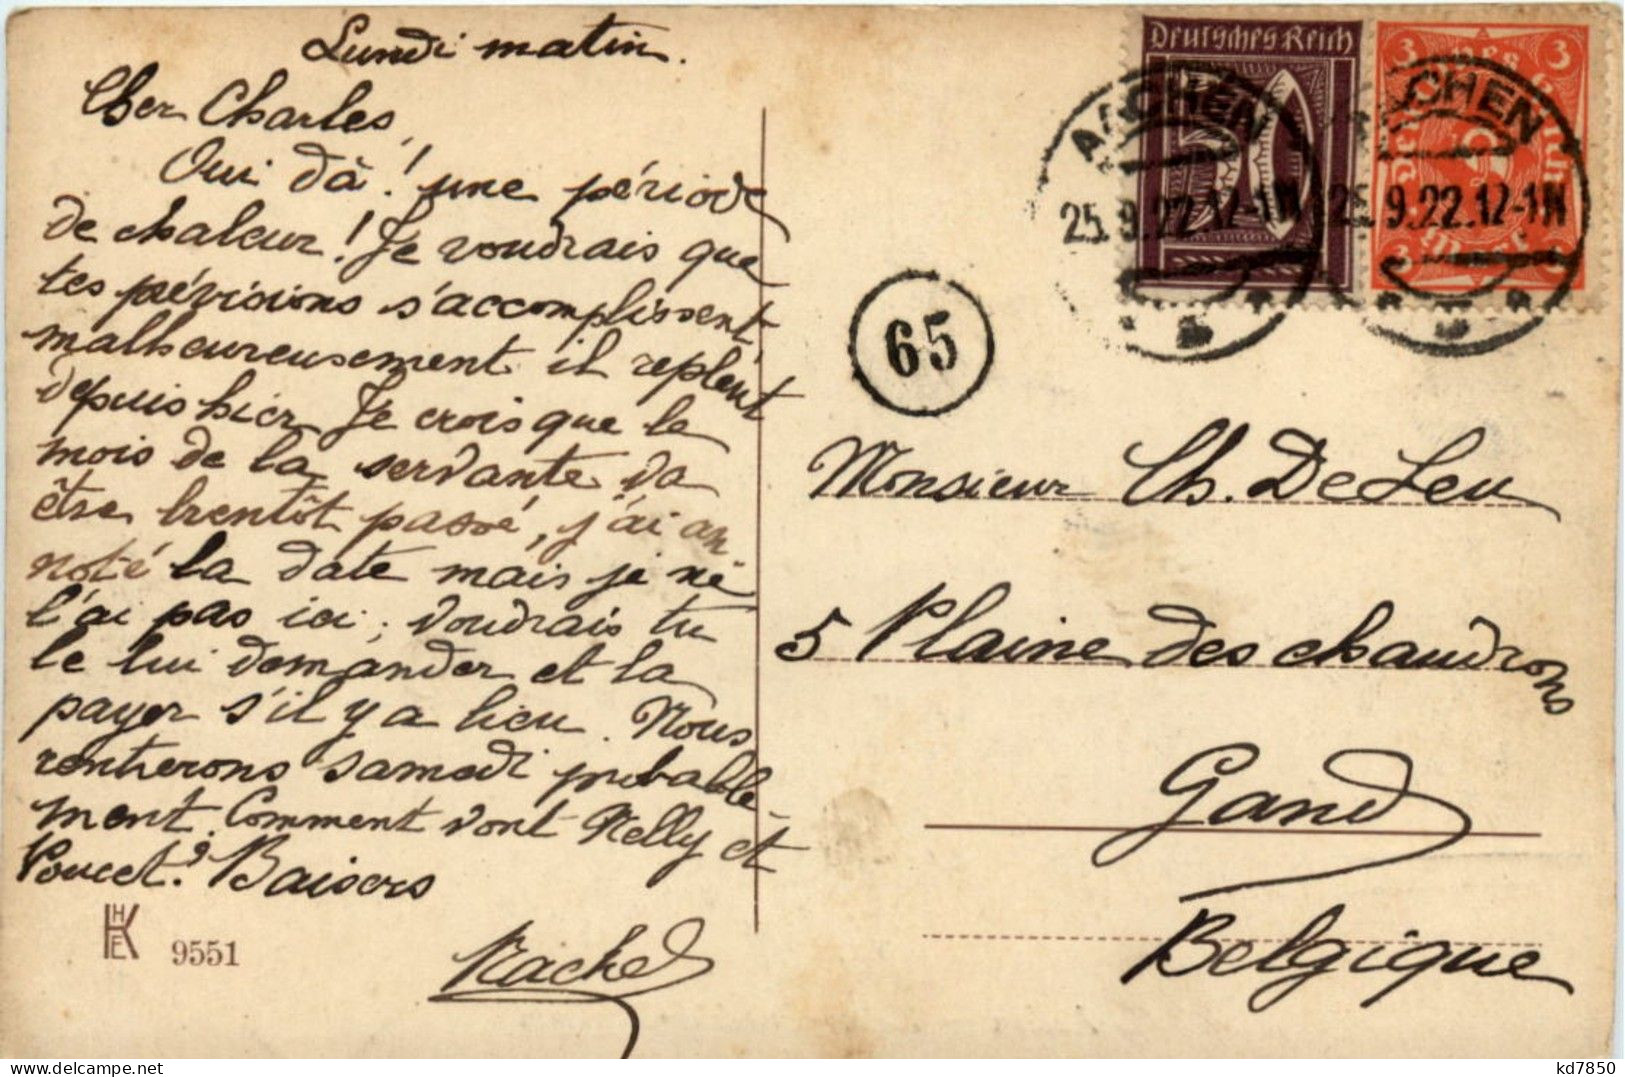 Lundi matin.
Cher Charles,
Oui dà! une période
de chaleur! Je voudrais que
tes prévisions s'accomplissent,
malheureusement il repleut
depuis hier. Je crois que le
mois de la servante va
être bientôt passé, j'ai an-
noté la date mais je ne
l'ai pas ici; voudrais tu
le lui demander et la
payer s'il y a lieu. Nous
rentrerons samedi probable-
ment. Comment vont Nelly et
Poucet? Baisers
Rachel
HKE
9551
Deutsches Reich
50
3 3
3 3
AACHEN
25.9.22.12-1N
AACHEN
25.9.22.12-1N
65
Monsieur Ch. De Leu
5 Plaine des chaudrons
Gand
Belgique
kd7850